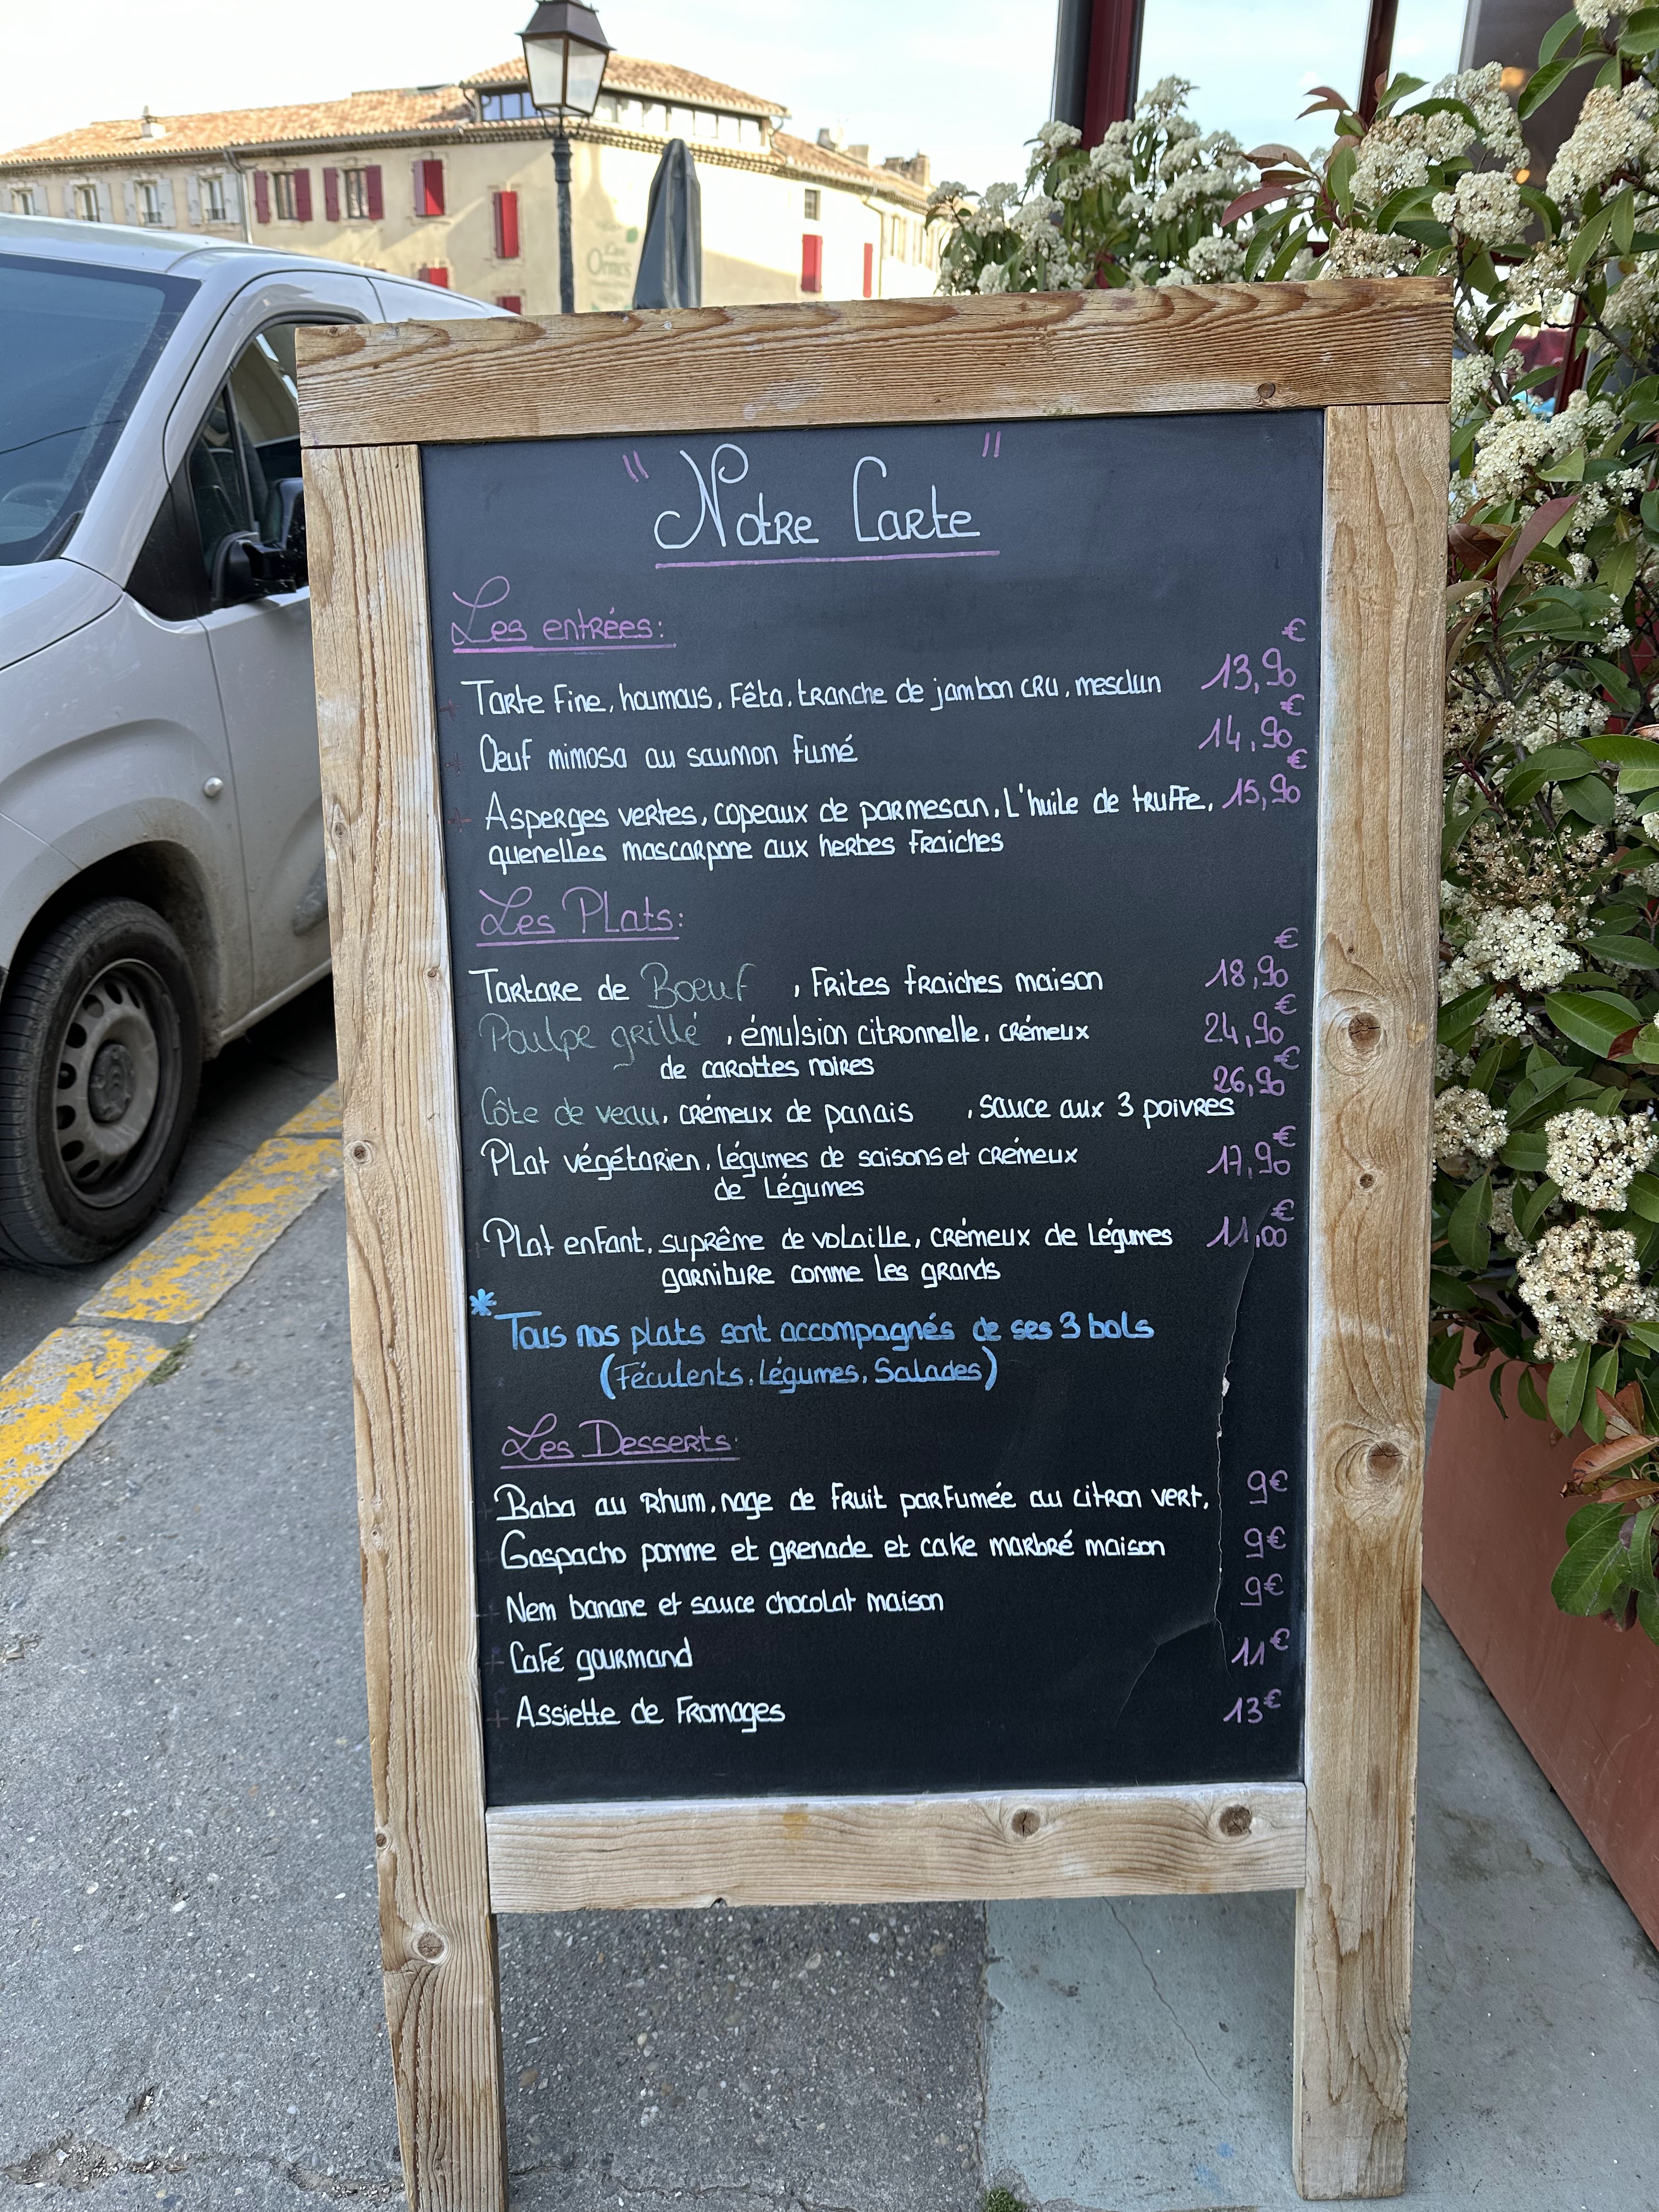 Les
Ormes
" Notre Carte "
Les entrées:
Tarte fine, houmous, fêta, tranche de jambon cru, mesclun 13,90 €
Oeuf mimosa au saumon fumé 14,90 €
Asperges vertes, copeaux de parmesan, L'huile de truffe, 15,90 €
quenelles mascarpone aux herbes fraiches
Les Plats:
Tartare de Boeuf , frites fraiches maison 18,90 €
Poulpe grillé , émulsion citronnelle, crémeux 24,90 €
de carottes noires
Côte de veau, crémeux de panais , sauce aux 3 poivres 26,90 €
Plat végétarien, légumes de saisons et crémeux 17,90 €
de Légumes
Plat enfant, suprême de volaille, crémeux de Légumes 11,00 €
garniture comme les grands
* Tous nos plats sont accompagnés de ses 3 bols
(Féculents, Légumes, Salades)
Les Desserts:
Baba au Rhum, nage de fruit parfumée au citron vert, 9€
Gaspacho pomme et grenade et cake marbré maison 9€
Nem banane et sauce chocolat maison 9€
Café gourmand 11€
Assiette de Fromages 13€